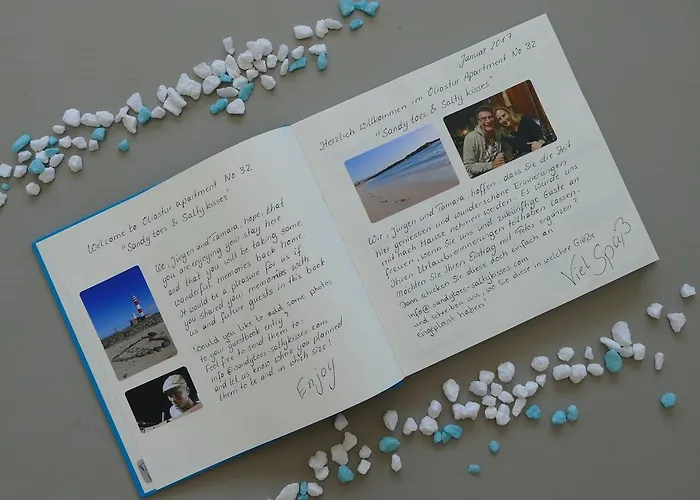 Welcome to Oliastur apartment No 32
"Sandy toes & Salty kisses"
We, Jürgen and Tamara, hope, that
you are enjoying your stay here
and that you will be taking some
wonderful memories back home
It would be a pleasure for us if
you shared your memories with
us and future guests in this book
Would you like to add some photos
to your guestbook entry?
Feel free to send them to:
info@sandytoes-saltykisses.com
and let us know where you planned
them to be and in which size!
Enjoy
Januar 2017
Herzlich Willkommen im Oliastur Apartment No 32
"Sandy toes & Salty kisses"
Wir, Jürgen und Tamara hoffen, dass Sie die Zeit
hier geniessen und wunderschöne Erinnerungen
mit nach Hause nehmen werden. Es würde uns
freuen, wenn Sie uns und zukünftige Gäste an
Ihren Urlaubserinnerungen teilhaben lassen.
Möchten Sie Ihren Eintrag mit Fotos ergänzen?
Dann schicken Sie diese doch einfach an
info@sandytoes-saltykisses.com
und schreiben uns, wo Sie diese in welcher Größe
eingeplant haben!
Viel Spaß